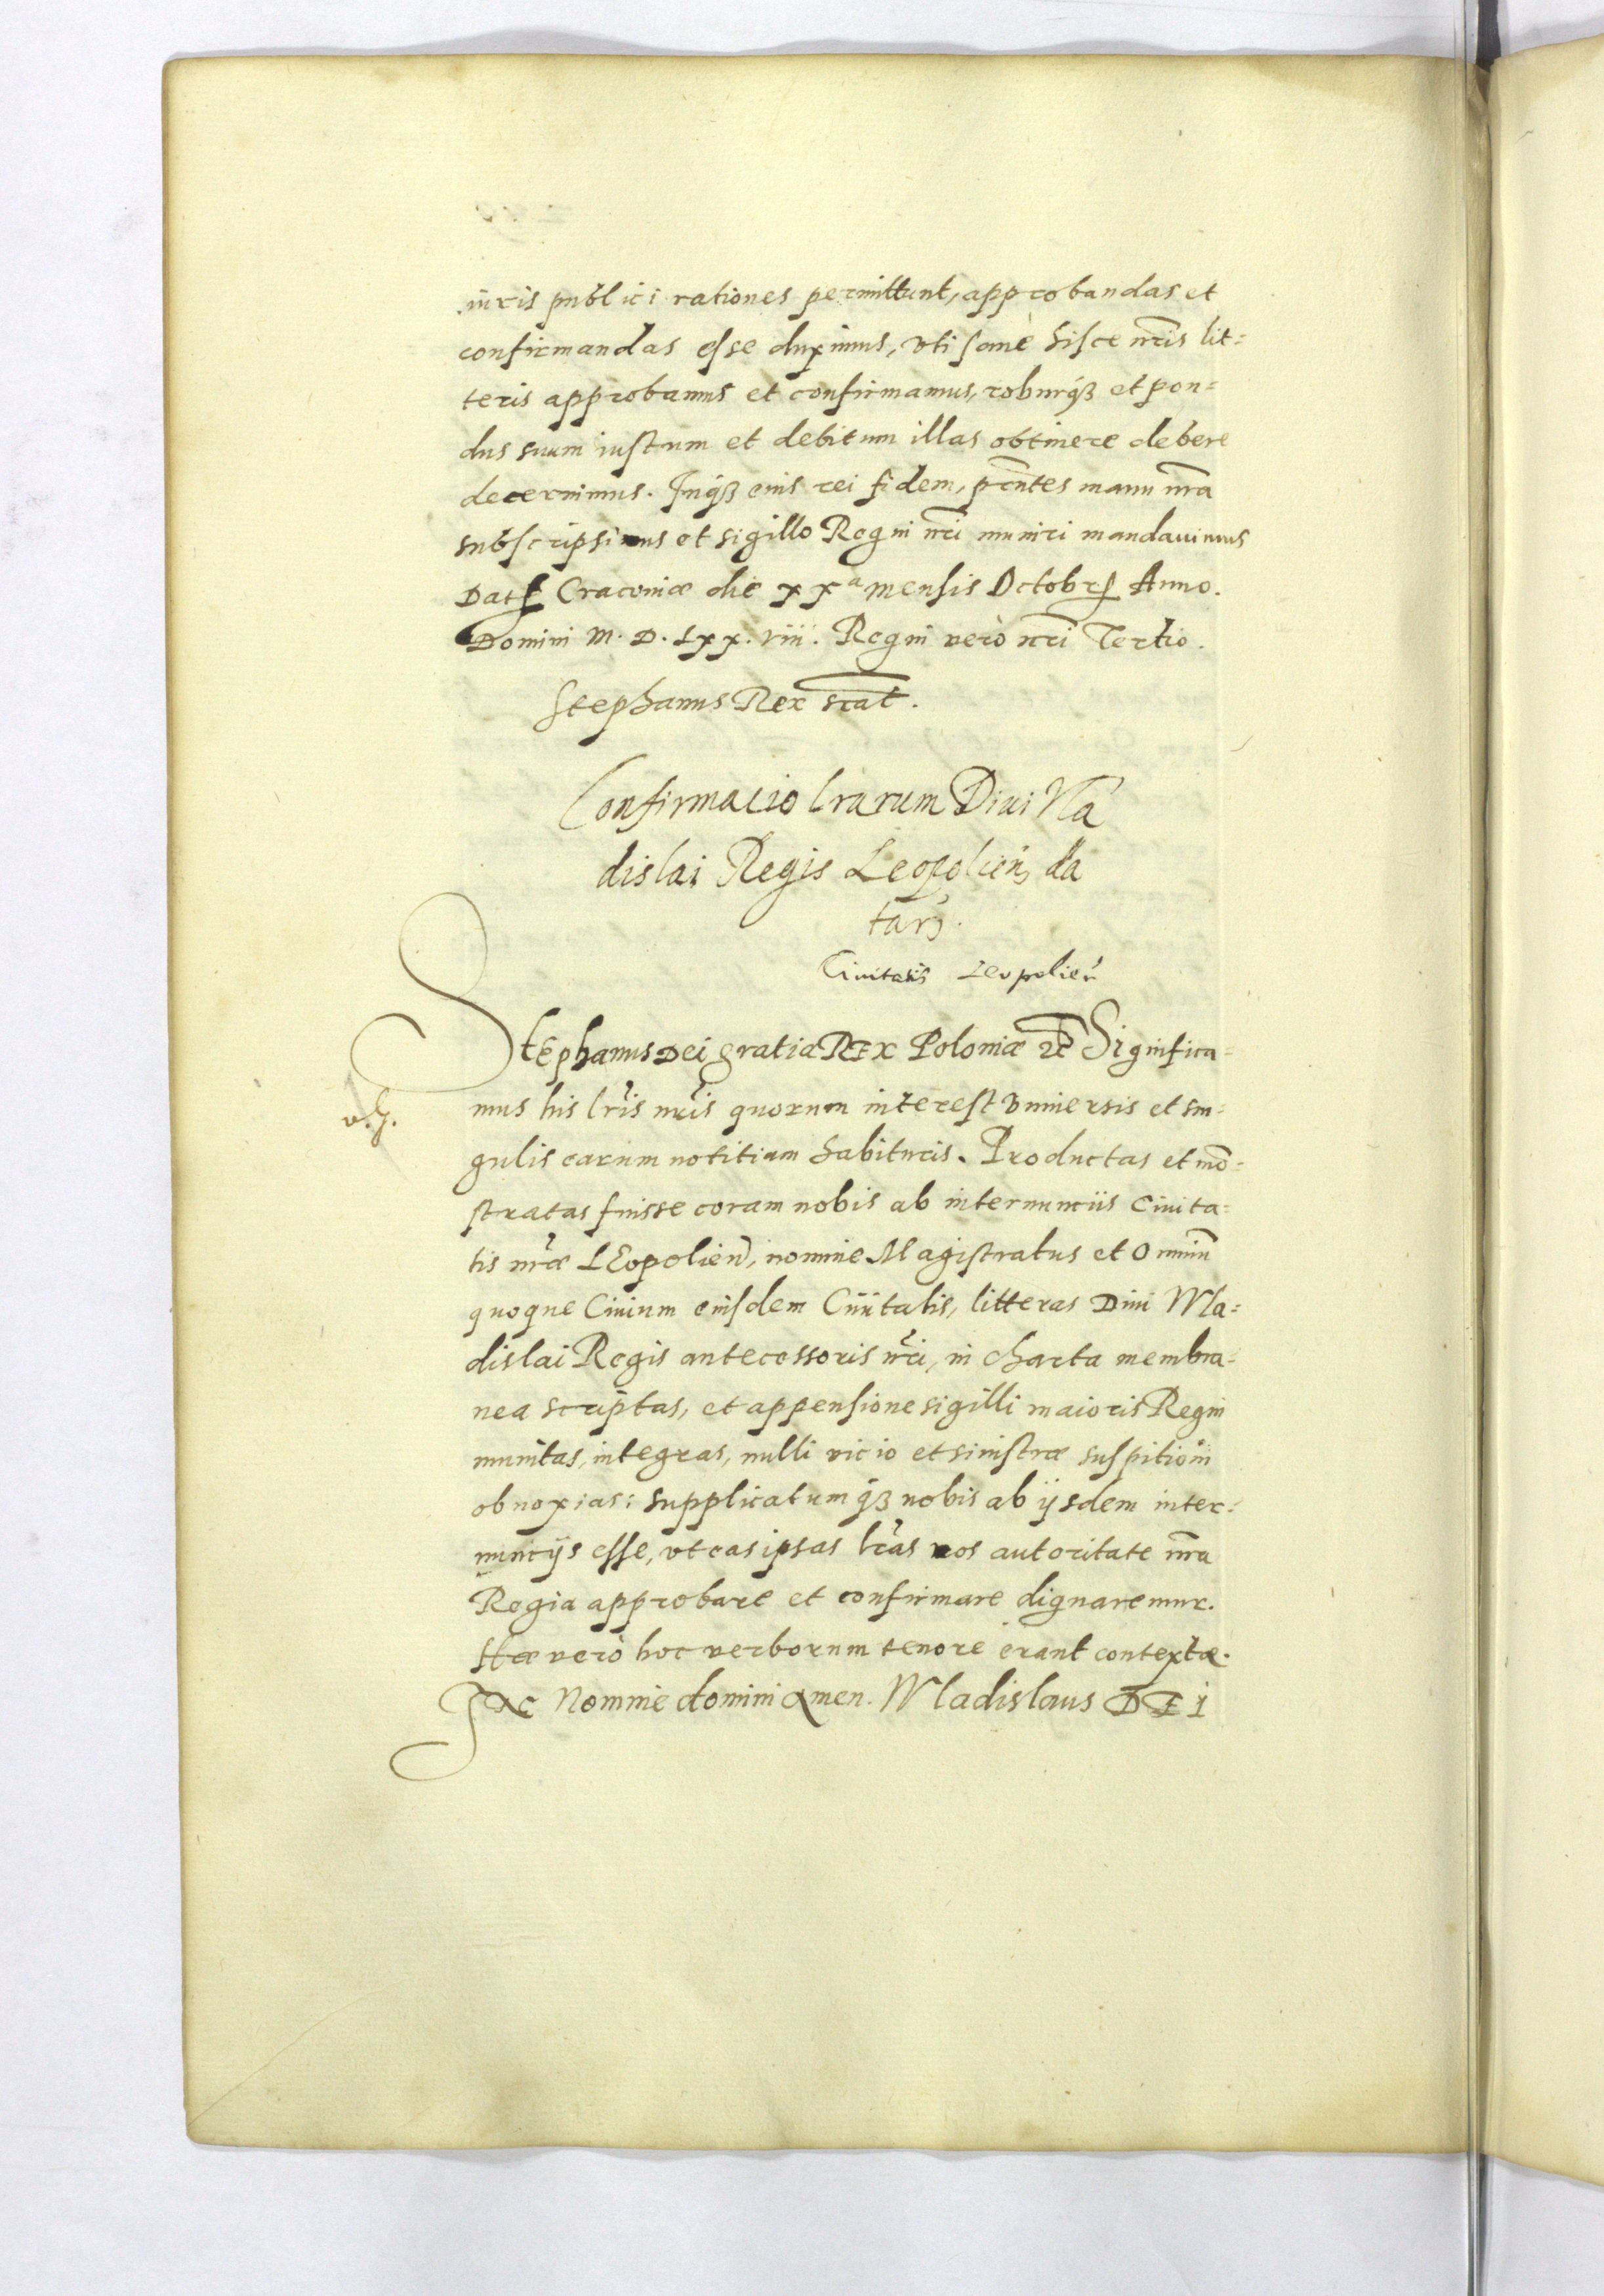 iuris publici rationes permittunt, approbandas et
confirmandas esse duximus, vti sane hisce nr̃is lit=
teris approbamus et confirmamus, roburqꝫ et pon=
dus suum iustum et debitum illas obtinere debere
decernimus. Inqꝫ eius rei fidem, pr̃ntes manu nr̃a
subscripsimus et sigillo Regni nr̃i muniri mandauimus
Datꝭ Cracouiæ die xxᵃ mensis Octobrꝭ Anno.
Domini M. D. Lxx. viii. Regni verò nr̃i Tertio.
Stephanus Rex
Confirmacio lrarum Diui Vla
dislai Regis Leopolień da
tarꝫ.
Ciuitatis Leopolień
Stephanus Dei gratia REX Poloniæ ꝛc̃ Significa=
mus his lr̃is nr̃is quorum interest vniuersis et sin=
gulis earum notitiam habituris. Productas et mõ=
stratas fuisse coram nobis ab internunciis Ciuita=
tis nr̃æ LEopolień, nomine Magistratus et Omniũ
quoque Ciuium eiusdem Ciuitatis, litteras Diui Wla=
dislai Regis antecessoris nr̃i, in charta membra=
nea scriptas, et appensione sigilli maioris Regni
munitas, integras, nulli vicio et sinistræ suspitioni
obnoxias: supplicatumqꝫ nobis ab ijsdem inter=
nuncijs esse, vt eas ipsas lr̃as nos autoritate nr̃a
Regia approbare et confirmare dignaremur.
Hæ verò hoc verborum tenore erant contextæ.
In Nomine domini amen. Wladislaus DEI